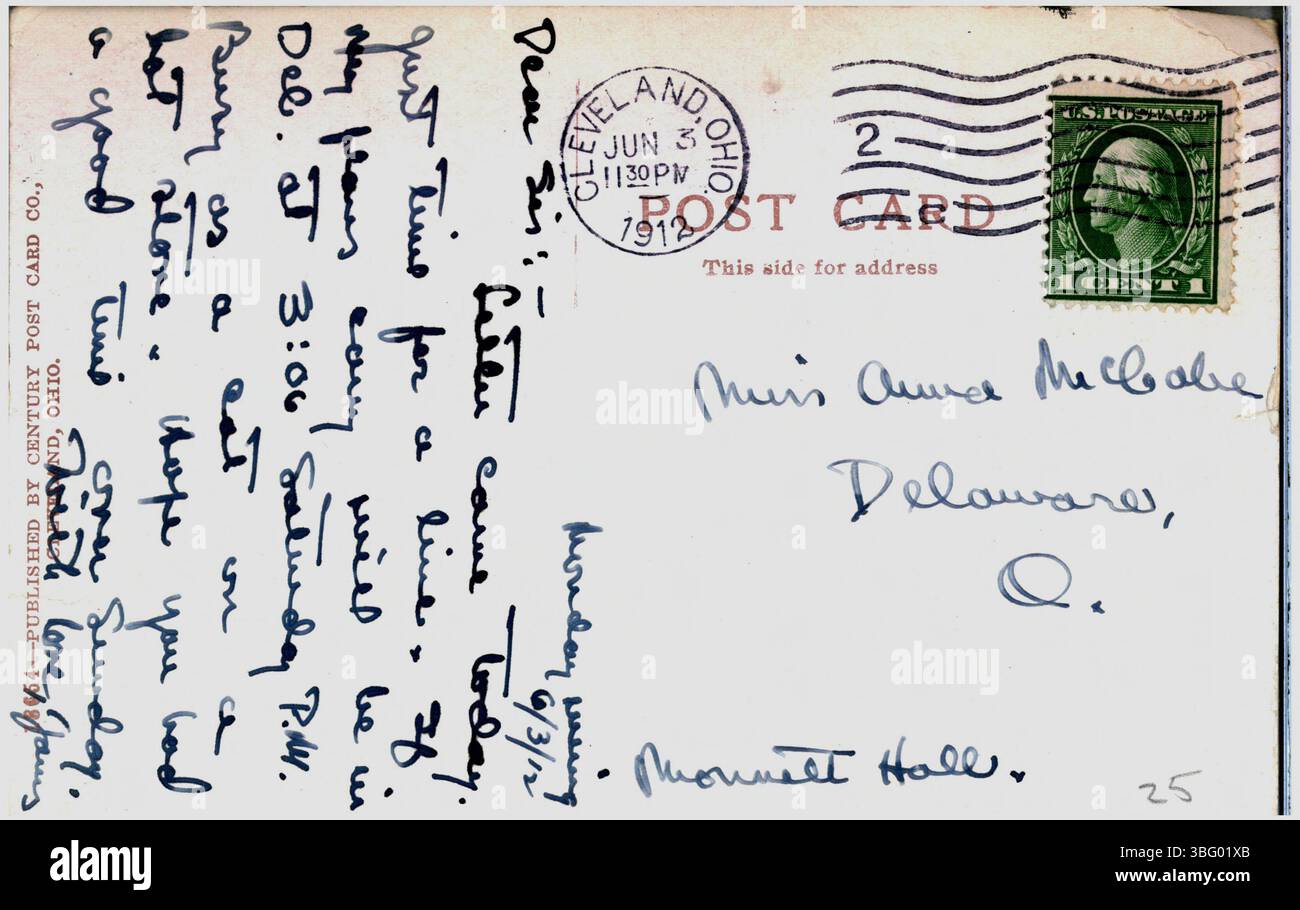 CLEVELAND, OHIO.
JUN 3
11 30 PM
1912
2
C
U.S. POSTAGE
1 CENT 1
POST CARD
This side for address
Miss Anna McCabe
Delaware,
O.
Monnett Hall.
25
Monday morning
6/3/12
Dear Sis:—
Letter came today.
Just time for a line. If
my plans carry will be in
Del. at 3:06 Saturday P.M.
Busy as a cat on a
hot stove. Hope you had
a good time over Sunday.
love
18654—PUBLISHED BY CENTURY POST CARD CO.,
CLEVELAND, OHIO.
alamy
alamy
Image ID: 3BG01XB
www.alamy.com